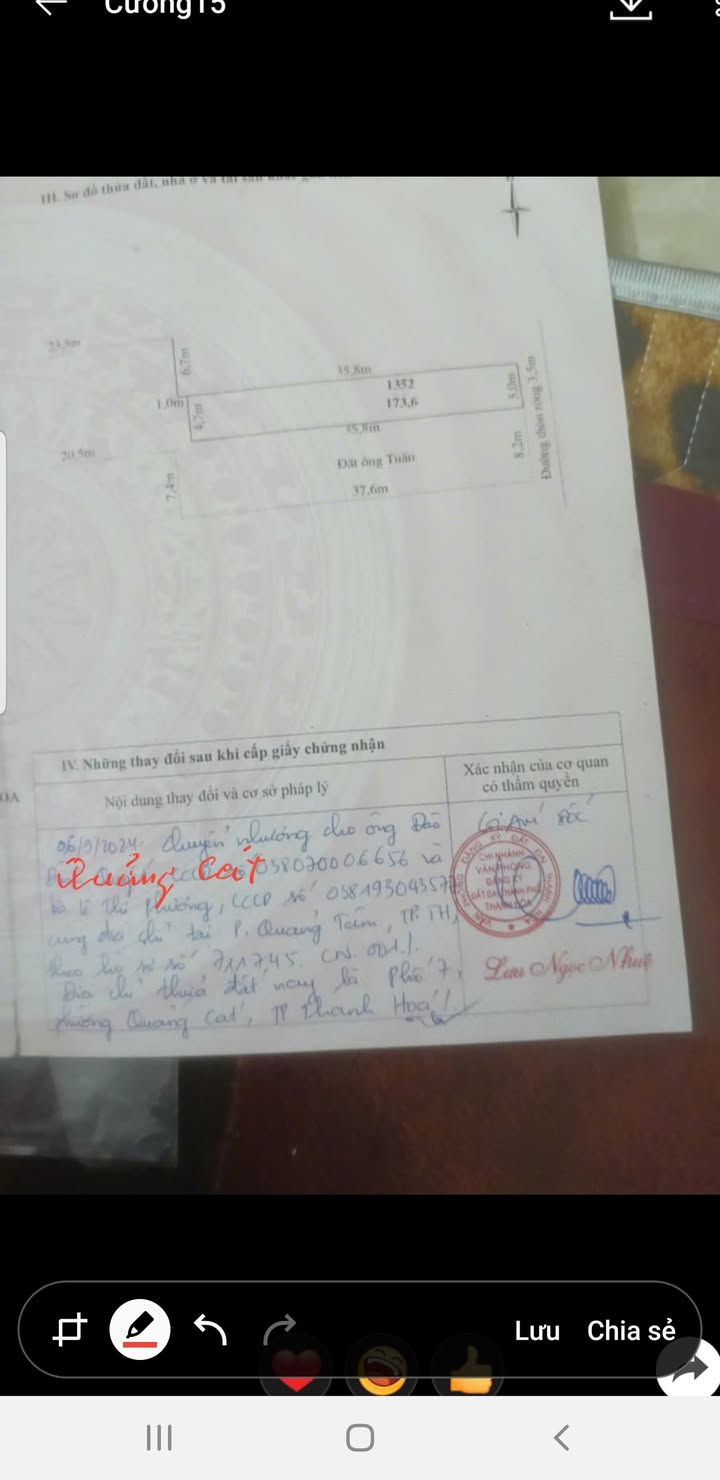 Cường15
III. Sơ đồ thửa đất, nhà ở và tài sản khác
23,5m
6,7m
35,8m
1352
5,0m
Đường thôn rộng 3,5m
1,0m
4,7m
173,6
35,8m
20,5m
Đất ông Tuân
8,2m
7,4m
37,6m
IV. Những thay đổi sau khi cấp giấy chứng nhận
OA
Nội dung thay đổi và cơ sở pháp lý
Xác nhận của cơ quan
có thẩm quyền
06/9/2024. Chuyển nhượng cho ông Đào
GIÁM ĐỐC
Quảng Cát
038070006656 và
bà Lê Thị Phương, CCCD số 038193043571
cùng địa chỉ tại P. Quảng Tâm, TP.TH,
theo hồ sơ số 711745.CN.001.
Địa chỉ thửa đất nay là Phố 7,
phường Quảng Cát, TP Thanh Hoá
CHI NHÁNH
VĂN PHÒNG
ĐĂNG KÝ
ĐẤT ĐAI THÀNH PHỐ
THANH HÓA
Lưu Ngọc Nhuệ
Lưu
Chia sẻ